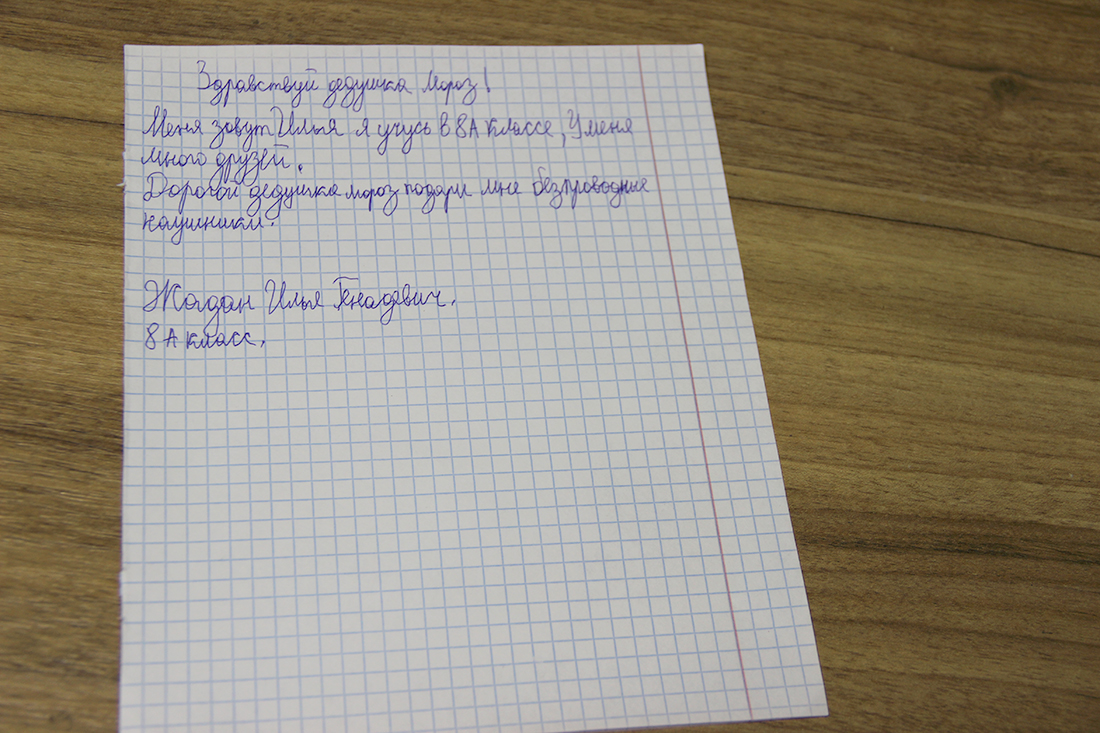 Здравствуй дедушка мороз!
Меня зовут Илья я учусь в 8А классе, У меня
много друзей.
Дорогой дедушка мороз подари мне безпроводные
наушники.
Жадан Илья Генадевич.
8 А класс.